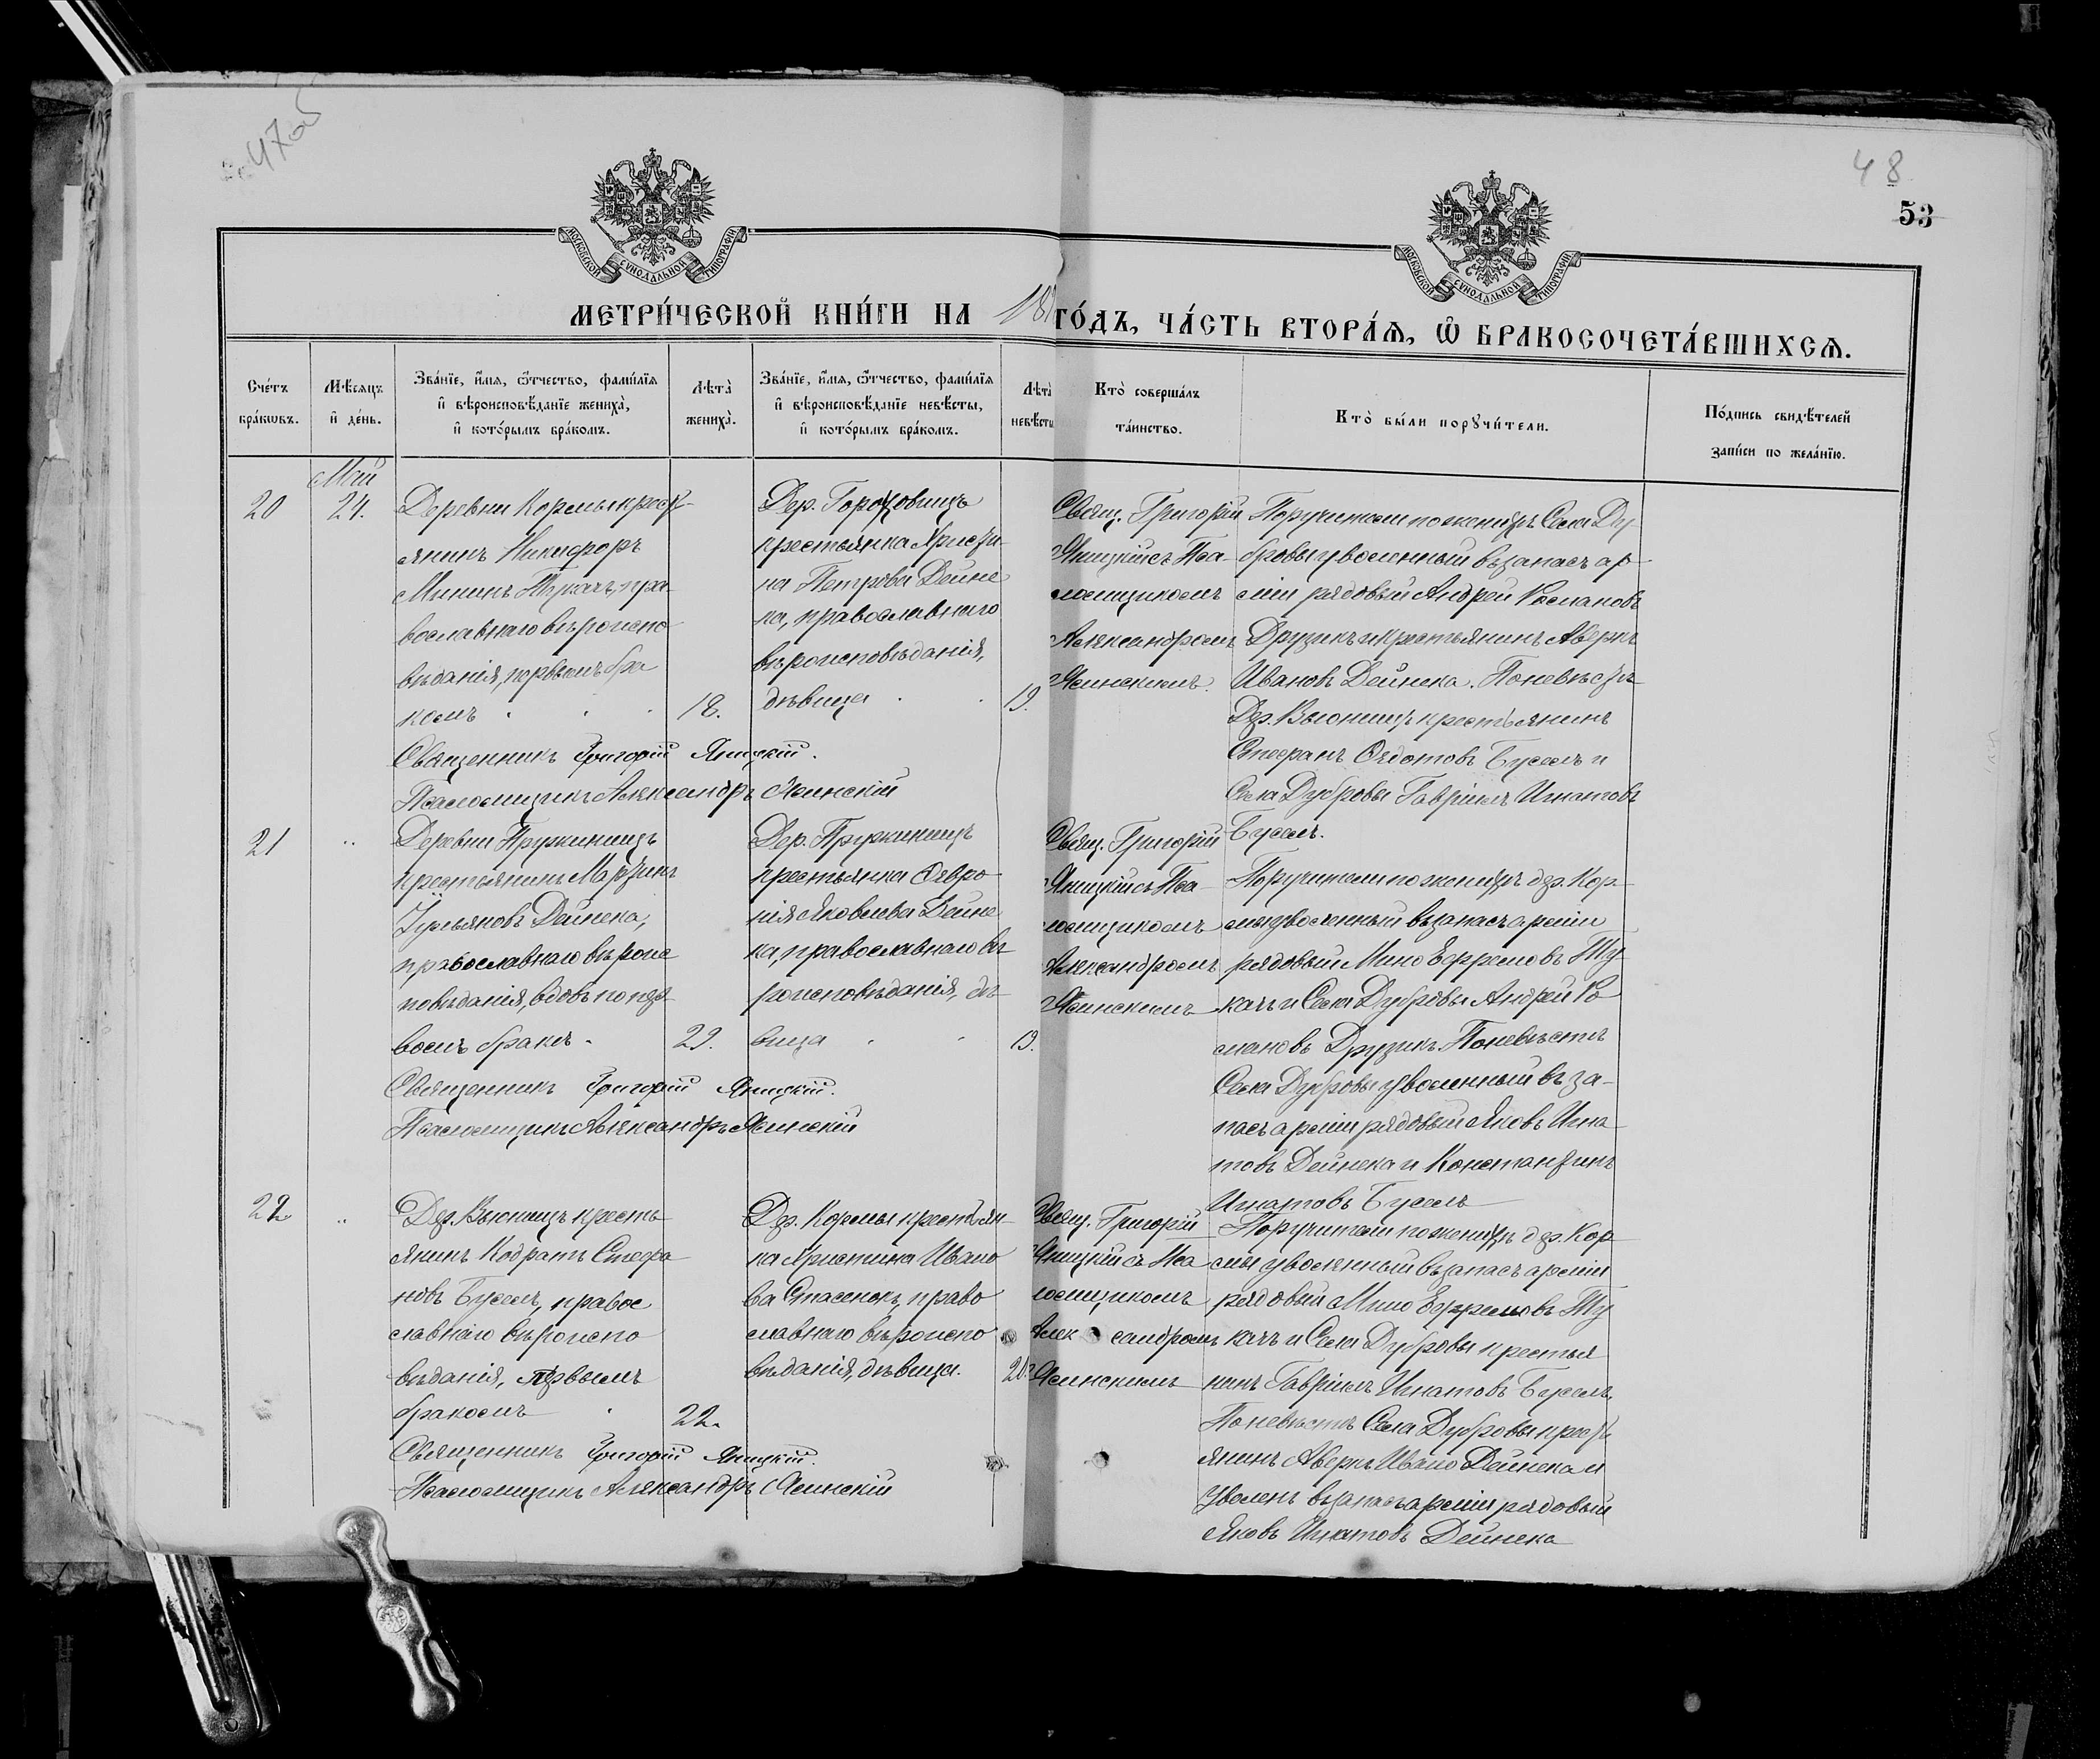 47об
48
53
МОСКОВСКОЙ СѴНОДАЛЬНОЙ ТИПОГРАФІИ
МОСКОВСКОЙ СѴНОДАЛЬНОЙ ТИПОГРАФІИ
МЕТРИ́ЧЕСКОЙ КНИ́ГИ НА 18
ГО́ДЪ, ЧА́СТЬ ВТОРА́Ѧ, Ѿ БРАКОСОЧЕТА́ВШИХСѦ.
Сче́тъ бра́кѡвъ.
Мѣ́сяцъ и҆ де́нь.
Зва́нїе, и҆́мя, ѻ҆́тчество, фами́лїя и҆ вѣроисповѣ́данїе жениха̀, и҆ кото́рымъ бра́комъ.
Лѣта̀ жениха̀.
Зва́нїе, и҆́мя, ѻ҆́тчество, фами́лїя и҆ вѣроисповѣ́данїе невѣ́сты, и҆ кото́рымъ бра́комъ.
Лѣта̀ невѣ́сты
Кто̀ соверша́лъ та́инство.
Кто̀ бы́ли порꙋчи́тели.
По́дпись свидѣ́телей за́писи по жела́нїю.
Май
20
24.
Деревни Кормы крест-
янинъ Никифоръ
Мининъ Ткачъ, пра-
вославнаго вѣроиспо-
вѣданія, первымъ бра
комъ
18.
Священникъ Григорій Яницкій.
Псаломщикъ Александръ Ясинскій
Дер.
крестьянка Христи-
на Петрова Дейне
ка, православнаго
вѣроисповѣданія,
дѣвица
19.
Свящ. Григорій
Яницкій съ Пса-
ломщикомъ
Александромъ
Ясинскимъ.
Поручители по женихѣ Села Ду-
бровы уволенный въ запасъ ар-
міи рядовый Андрей Романовъ
Друзикъ и крестьянинъ Аверкъ
Ивановъ Дейнека. По невѣстѣ
Дер. Вьюнищъ крестьянинъ
Стефанъ Ѳедотовъ Бусель и
Села Дубровы Гавріилъ Игнатовъ
Бусель.
21
"
Деревни Пружинищъ
крестьянинъ Мартинъ
Іульяновъ Дейнека,
православнаго вѣроис
повѣданія, вдовъ по пер-
вомъ бракѣ
29.
Священникъ Григорій Яницкій.
Псаломщикъ Александръ Ясинскій
Дер. Пружинищъ
крестьянка Февро-
нія Яковлева Дейне
ка, православнаго вѣ-
роисповѣданія, дѣ-
вица
19.
Свящ. Григорій
Яницкій съ Пса-
ломщикомъ
Александромъ
Ясинскимъ
Поручители по женихѣ дер. Кор-
мы уволенный въ запасъ арміи
рядовый Мино Ефремовъ Тка-
качъ и Села Дубровы Андрей Ро
мановъ Друзикъ. По невѣстѣ
Села Дубровы уволенный въ за-
пасъ арміи рядовый Яковъ Игна
товъ Дейнека и Константинъ
Игнатовъ Бусель
22
"
Дер. Вьюнищъ кресть-
янинъ Кодратъ Стефа
новъ Бусель, правос
лавнаго вѣроиспо
вѣданія, первымъ
бракомъ
22.
Священникъ Григорій Яницкій.
Псаломщикъ Александръ Ясинскій
Дер. Кормы крестьян-
ка Христина Ивано
ва Стасенокъ, право
славнаго вѣроиспо
вѣданія, дѣвица.
20.
Свящ. Григорій
Яницкій съ Пса
ломщикомъ
Александромъ
Ясинскимъ
Поручители по женихѣ дер. Кор-
мы уволенный въ запасъ арміи
рядовый Мино Ефремовъ Ту
качъ и Села Дубровы крестья
нинъ Гавріилъ Игнатовъ Бусель.
По невѣстѣ Села Дубровы крест
янинъ Аверкъ Ивано Дейнека и
уволенъ въ запасъ арміи рядовый
Яковъ Игнатовъ Дейнека